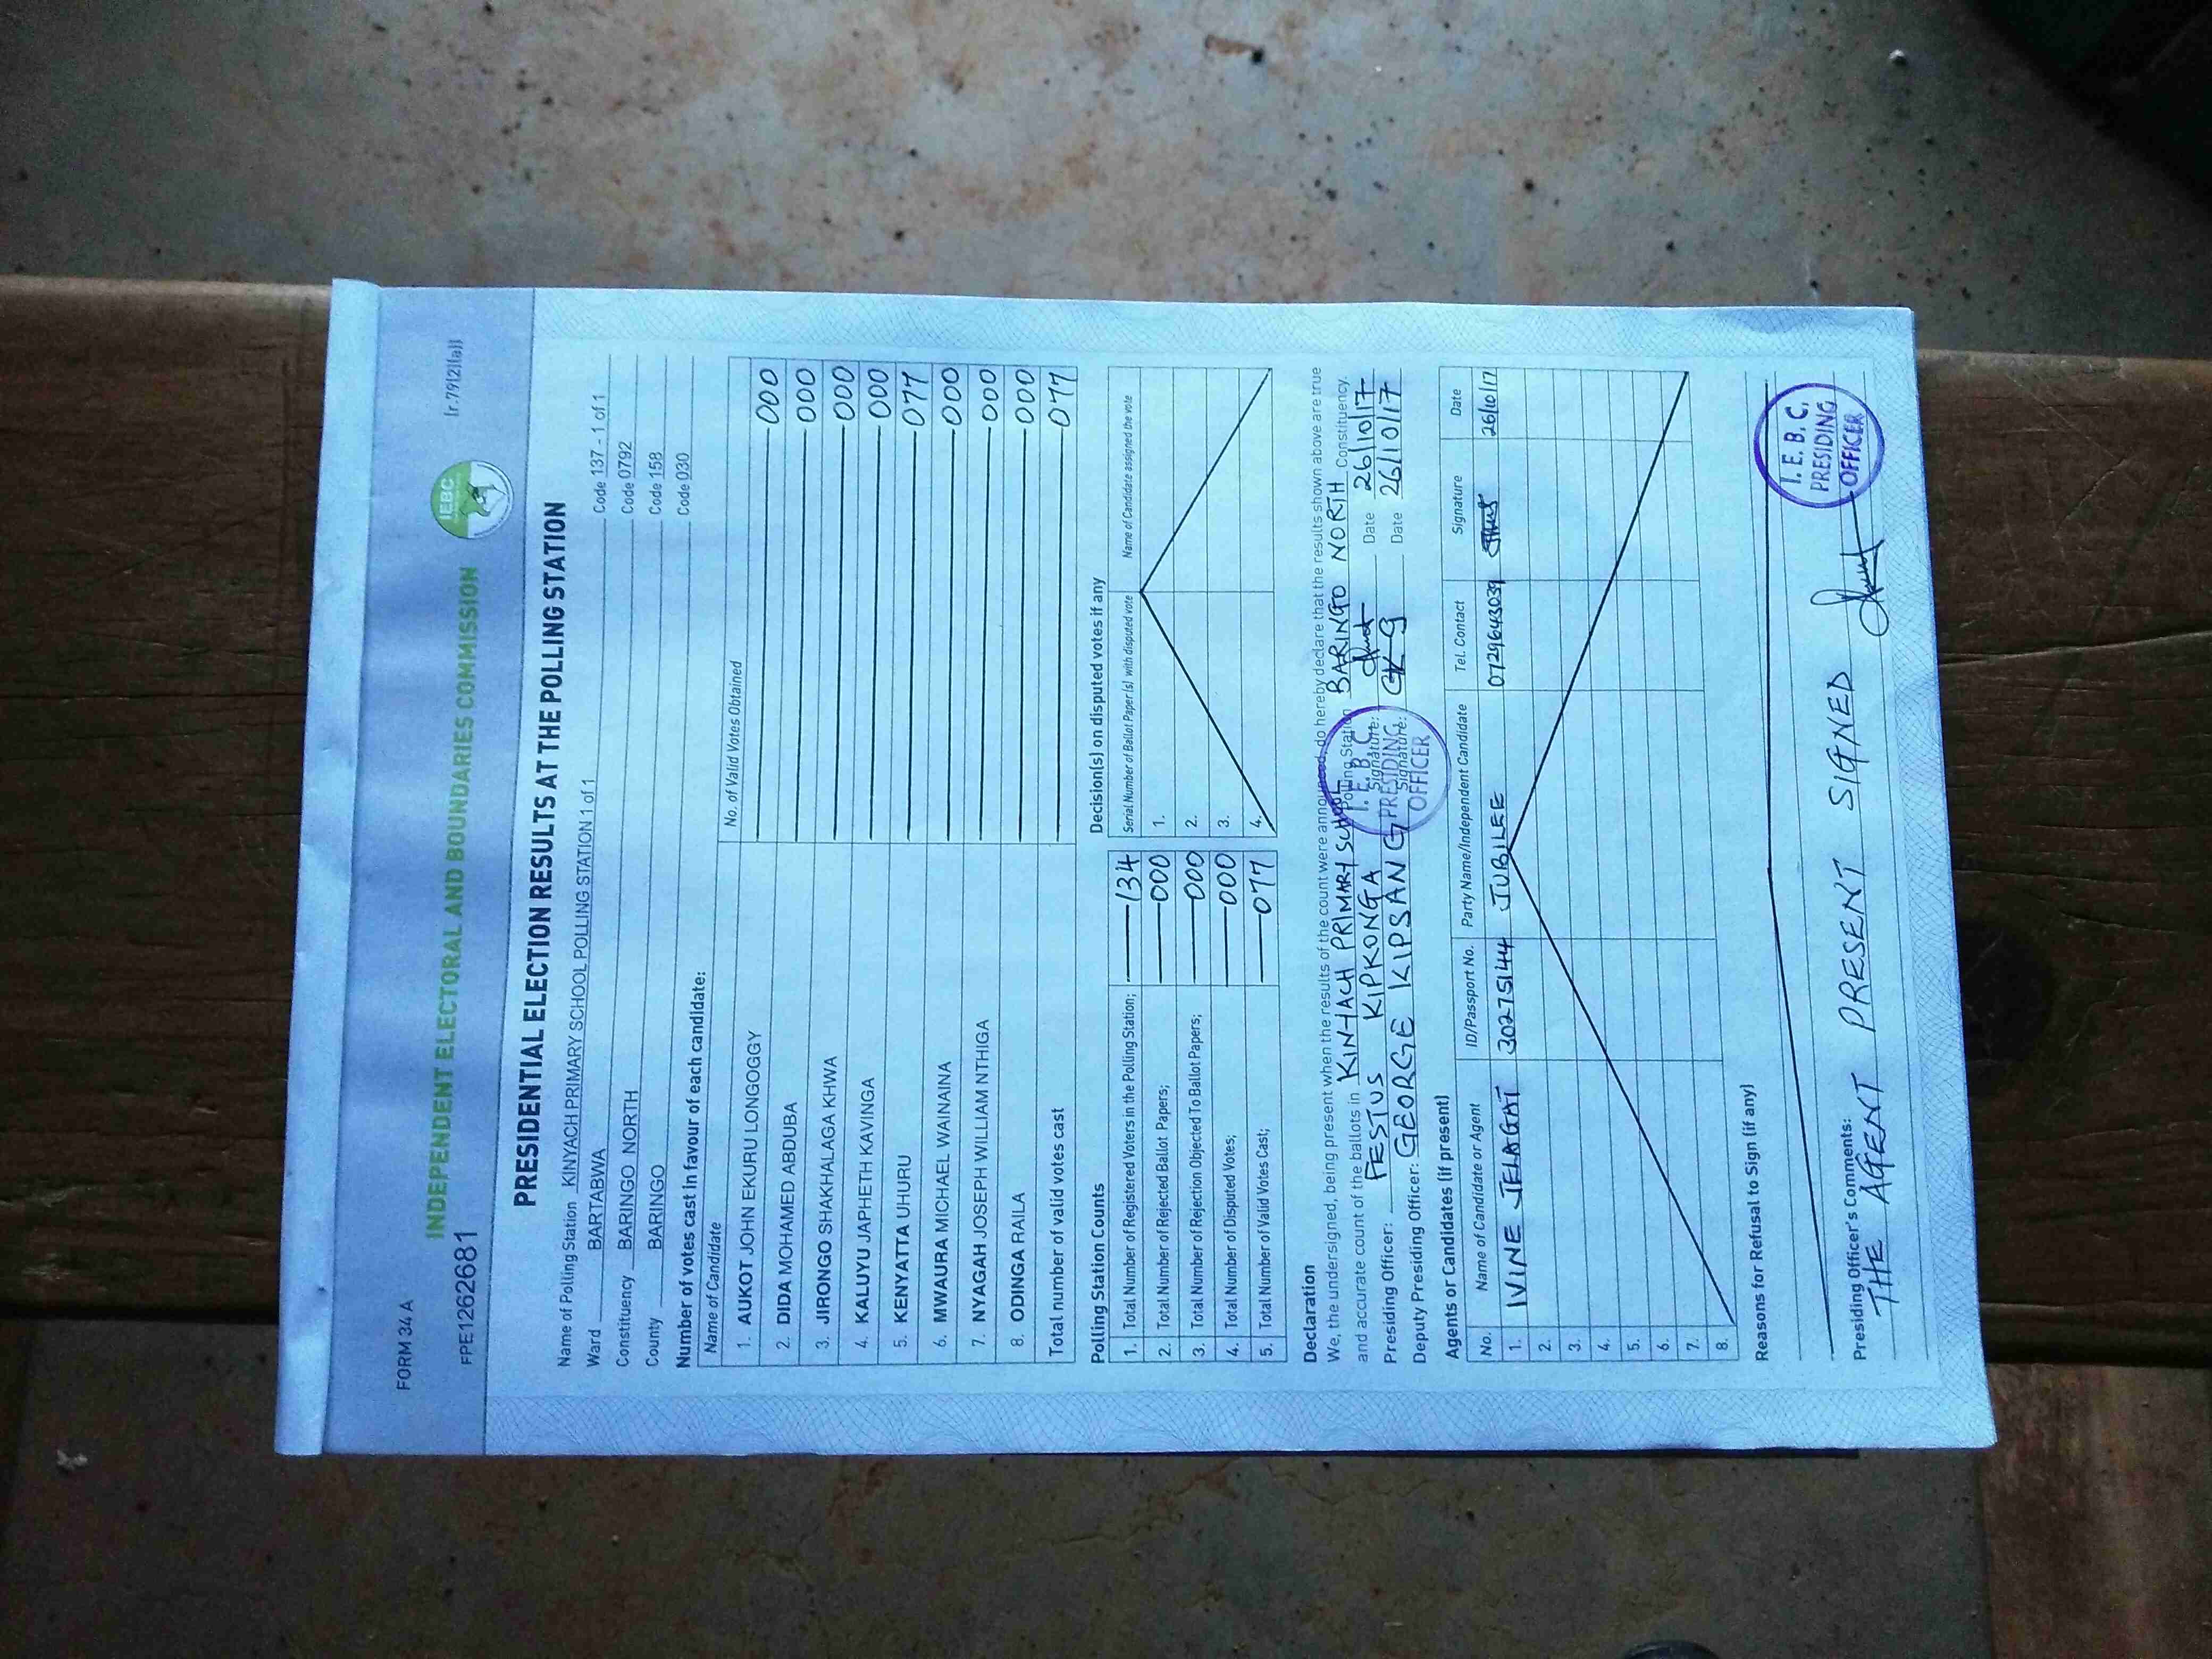 FORM 34 A
(r.79(2)(a))
INDEPENDENT ELECTORAL AND BOUNDARIES COMMISSION
IEBC
FPE1262681
PRESIDENTIAL ELECTION RESULTS AT THE POLLING STATION
Name of Polling Station KINYACH PRIMARY SCHOOL POLLING STATION 1 of 1 Code 137 - 1 of 1
Ward BARTABWA Code 0792
Constituency BARINGO NORTH Code 158
County BARINGO Code 030
Number of votes cast in favour of each candidate:
Name of Candidate No. of Valid Votes Obtained
1. AUKOT JOHN EKURU LONGOGGY 000
2. DIDA MOHAMED ABDUBA 000
3. JIRONGO SHAKHALAGA KHWA 000
4. KALUYU JAPHETH KAVINGA 000
5. KENYATTA UHURU 077
6. MWAURA MICHAEL WAINAINA 000
7. NYAGAH JOSEPH WILLIAM NTHIGA 000
8. ODINGA RAILA 000
Total number of valid votes cast 077
Polling Station Counts
1. Total Number of Registered Voters in the Polling Station; 134
2. Total Number of Rejected Ballot Papers; 000
3. Total Number of Rejection Objected To Ballot Papers; 000
4. Total Number of Disputed Votes; 000
5. Total Number of Valid Votes Cast; 077
Decision(s) on disputed votes if any
Serial Number of Ballot Paper(s) with disputed vote Name of Candidate assigned the vote
1.
2.
3.
4.
Declaration
We, the undersigned, being present when the results of the count were announced, do hereby declare that the results shown above are true
and accurate count of the ballots in KINYACH PRIMARY SCHOOL Polling Station BARINGO NORTH Constituency.
Presiding Officer: FESTUS KIPKONGA Signature: Date 26/10/17
Deputy Presiding Officer: GEORGE KIPSANG Signature: Date 26/10/17
I. E. B. C.
PRESIDING
OFFICER
Agents or Candidates (if present)
No. Name of Candidate or Agent ID/Passport No. Party Name/Independent Candidate Tel. Contact Signature Date
1. IVINE JELAGAT 30275144 JUBILEE 0729643039 26/10/17
2.
3.
4.
5.
6.
7.
8.
Reasons for Refusal to Sign (if any)
Presiding Officer's Comments:
THE AGENT PRESENT SIGNED
I. E. B. C.
PRESIDING
OFFICER